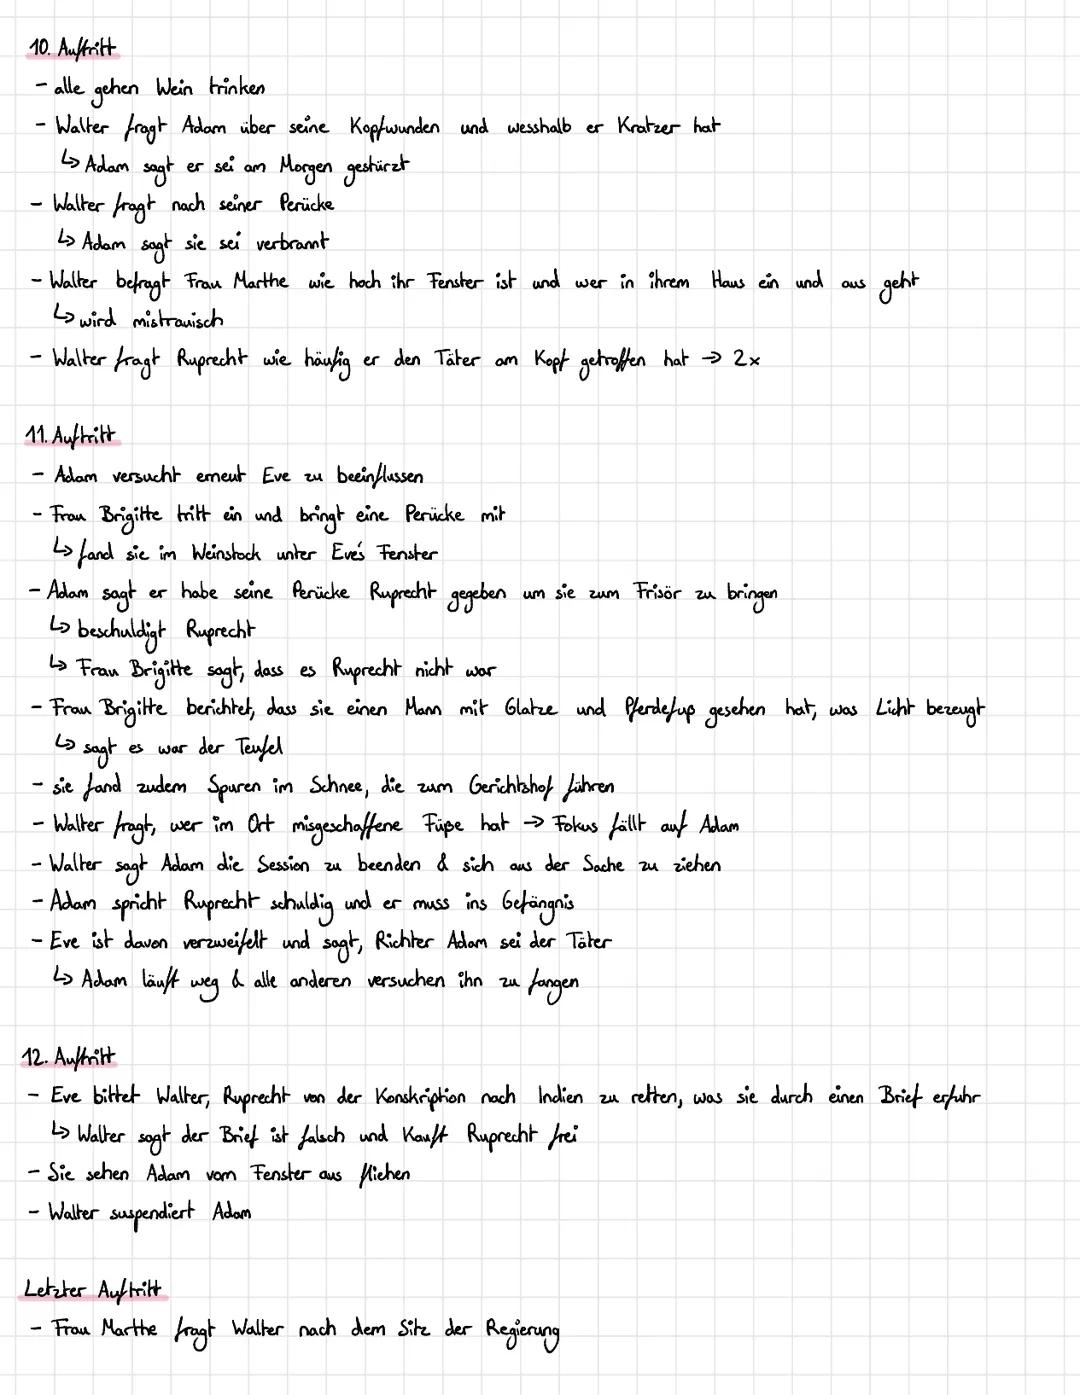 10. Auftritt
- alle gehen Wein trinken
- Walter fragt Adam über seine Kopfwunden und wesshalb er Kratzer hat
↳ Adam sagt er sei am Morgen gestürzt
- Walter fragt nach seiner Perücke
↳ Adam sagt sie sei verbrannt
- Walter befragt Frau Marthe wie hoch ihr Fenster ist und wer in ihrem Haus ein und aus geht
↳ wird mistrauisch
- Walter fragt Ruprecht wie häufig er den Täter am Kopf getroffen hat → 2x
11. Auftritt
- Adam versucht erneut Eve zu beeinflussen
- Frau Brigitte tritt ein und bringt eine Perücke mit
↳ fand sie im Weinstock unter Eve's Fenster
- Adam sagt er habe seine Perücke Ruprecht gegeben um sie zum Frisör zu bringen
↳ beschuldigt Ruprecht
↳ Frau Brigitte sagt, dass es Ruprecht nicht war
- Frau Brigitte berichtet, dass sie einen Mann mit Glatze und Pferdefuß gesehen hat, was Licht bezeugt
↳ sagt es war der Teufel
- sie fand zudem Spuren im Schnee, die zum Gerichtshof führen
- Walter fragt, wer im Ort misgeschaffene Füße hat → Fokus fällt auf Adam
- Walter sagt Adam die Session zu beenden & sich aus der Sache zu ziehen
- Adam spricht Ruprecht schuldig und er muss ins Gefängnis
- Eve ist davon verzweifelt und sagt, Richter Adam sei der Täter
↳ Adam läuft weg & alle anderen versuchen ihn zu fangen
12. Auftritt
- Eve bittet Walter, Ruprecht von der Konskription nach Indien zu retten, was sie durch einen Brief erfuhr
↳ Walter sagt der Brief ist falsch und Kauft Ruprecht frei
- Sie sehen Adam vom Fenster aus fliehen
- Walter suspendiert Adam
Letzter Auftritt
- Frau Marthe fragt Walter nach dem Sitz der Regierung